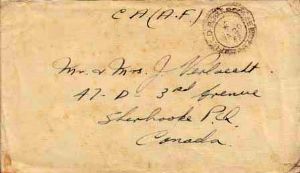 C A (A.F.)
Mr. & Mrs. J.
47-D- 3rd Avenue
Sherbrooke P.Q.
Canada.